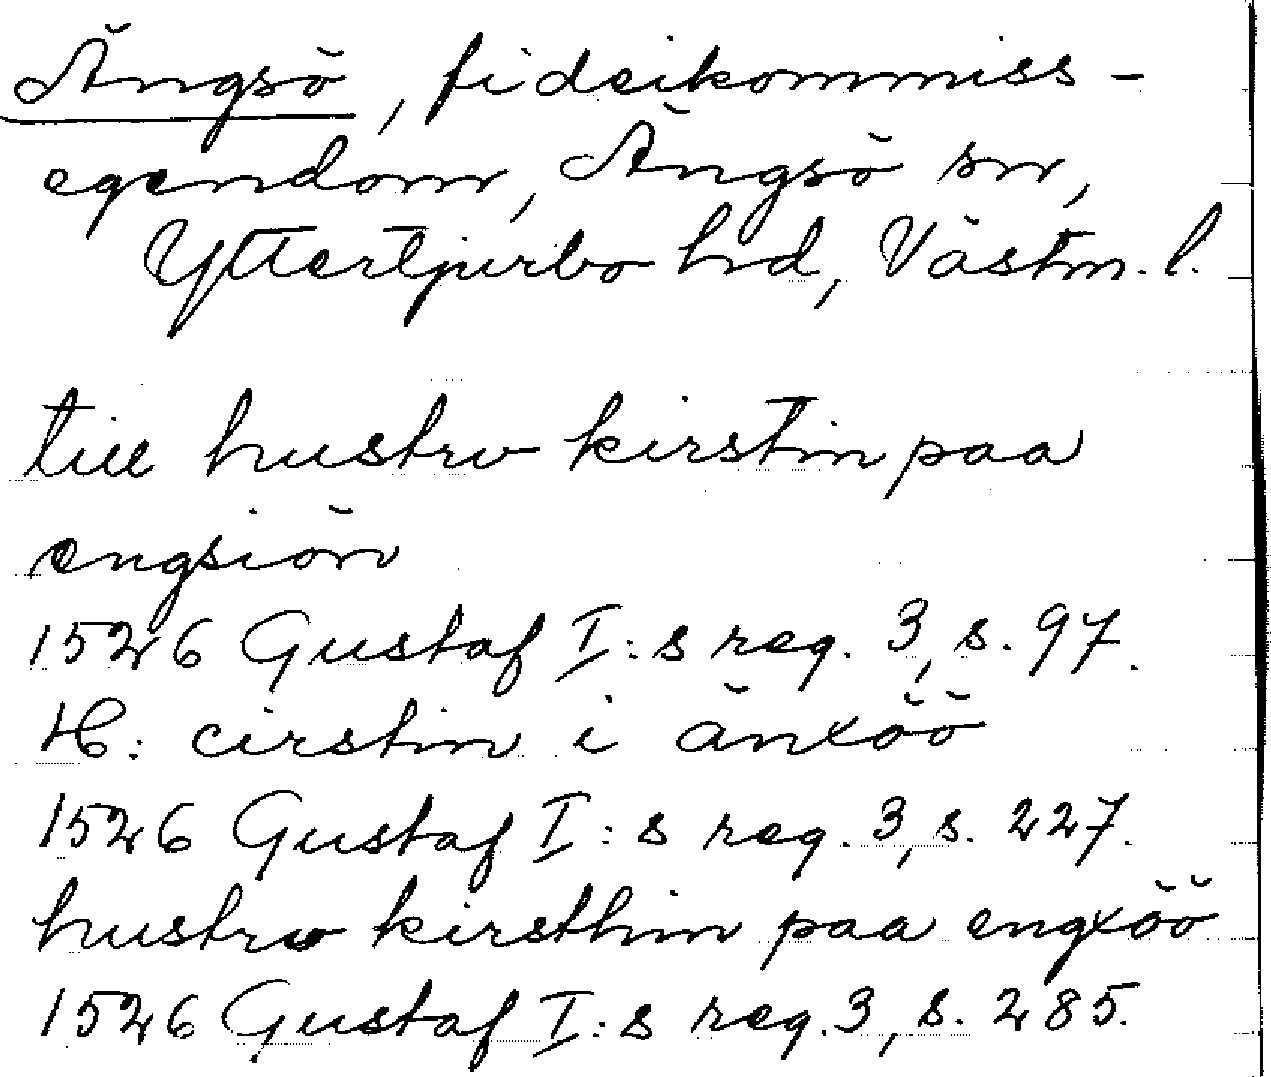 Ängsö, fideikommiss-
egendom, Ängsö sn,
Yttertjurbo hd, Västm. l.
till hustrv kirstin paa
engsiön
1526 Gustaf I:s reg. 3, s. 97.
H: cirstin i änxöö
1526 Gustaf I:s reg. 3, s. 227.
hustrv kirsthin paa engxöö
1526 Gustaf I:s reg. 3, s. 285.